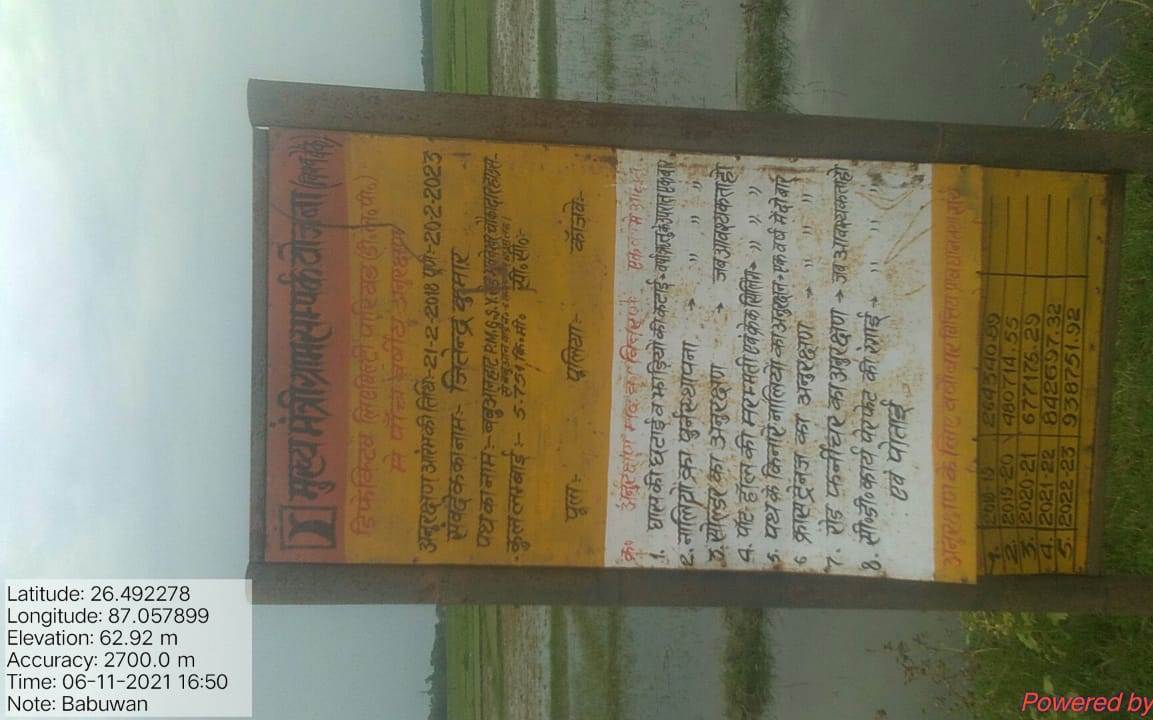 मुख्य मंत्री ग्राम सम्पर्क योजना (विश्व बैंक)
डिफेक्टिव लियबिलिटी पीरियड (डी.एल.पी.)
में पाँच वर्षीय अनुरक्षण
अनुरक्षण आरंभ की तिथि:- 21-2-2018 पूर्ण:- 20-2-2023
संवेदक का नाम:- जितेन्द्र कुमार
पथ का नाम:-
कुल लम्बाई:- 5.751 कि.मी० सी०:-
पुल:- पुलिया:- कॉजवे:-
क्र० अनुरक्षण मद का विवरण
1. घास की छटाई व झाड़ियों की कटाई
2. का पुनःस्थापना → " " "
3. सोल्डर का अनुरक्षण → जब आवश्यकता हो
4. पॉट होल की मरम्मती → " " "
5. पथ के किनारे नालियों का अनुरक्षण → एक वर्ष में दो बार
6 क्रास ड्रेनेज का अनुरक्षण → " " "
7. रोड फर्नीचर का अनुरक्षण → जब आवश्यकता हो
8. सी०डी० कार्य पैरापेट की रंगाई → " " "
एवं पोताई
अनुरक्षण के लिए वर्षवार वित्तीय प्रावधान
1. 264340.99
2. 2019-20 480714.55
3. 2020-21 677176.29
4. 2021-22 842697.32
5. 2022-23 938751.92
Latitude: 26.492278
Longitude: 87.057899
Elevation: 62.92 m
Accuracy: 2700.0 m
Time: 06-11-2021 16:50
Note: Babuwan
Powered by